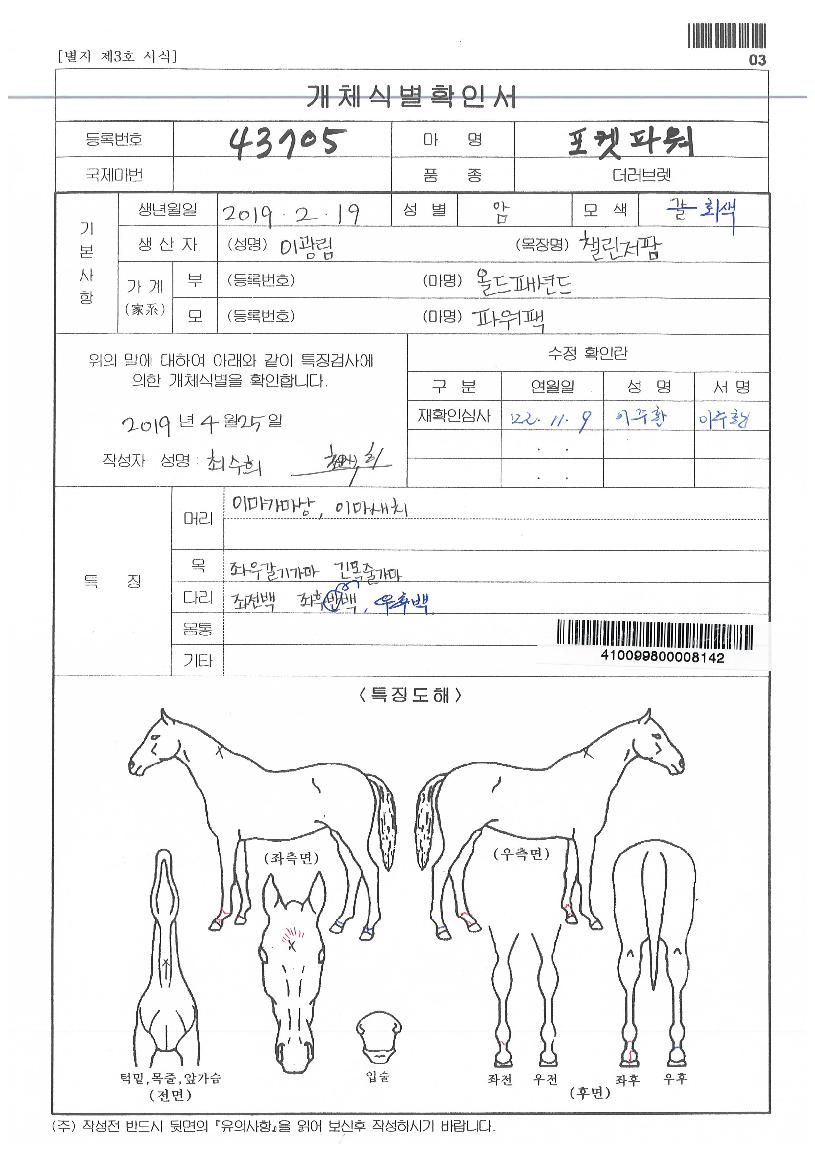 [별지 제3호 서식]
03
개체식별확인서
등록번호 43705 마 명 포켓파워
국제마번 품 종 더러브렛
기본사항
생년월일 2019 . 2 . 19 성 별 암 모 색 갈 회색
생 산 자 (성명) 이광림 (목장명) 챌린저팜
가 계 (家系) 부 (등록번호) (마명) 올드패션드
모 (등록번호) (마명) 파워팩
위의 말에 대하여 아래와 같이 특징검사에
의한 개체식별을 확인합니다.
2019 년 4 월 25 일
작성자 성명 : 최수희
수정 확인란
구 분 연월일 성 명 서 명
재확인심사 '22. 11. 9 이주환
. .
. .
특 징
머리 이마가마상, 이마새치
목 좌우갈기가마 긴목줄가마
다리 좌전백 좌후반백, 우후백
몸통
기타
410099800008142
<특징도해>
(좌측면) (우측면)
턱밑,목줄,앞가슴
(전면)
입술
좌전 우전 좌후 우후
(후면)
(주) 작성전 반드시 뒷면의 『유의사항』을 읽어 보신후 작성하시기 바랍니다.